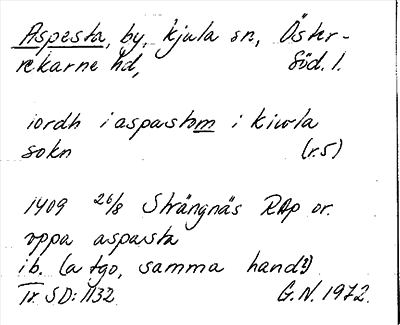 Aspesta, by, Kjula sn, Öster-
rekarne hd, Söd. l.
iordh i aspastom i kiwla
sokn (r.5)
1409 26/8 Strängnäs RAp or.
vppa aspasta
ib. (a tgo, samma hand?)
Tr. SD: 1132 G.N. 1972.